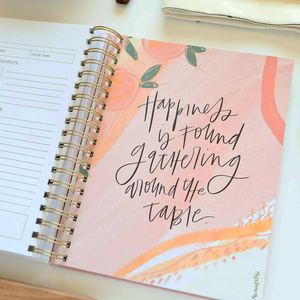 COOK TIME
Happiness
is found
gathering
around the
table.